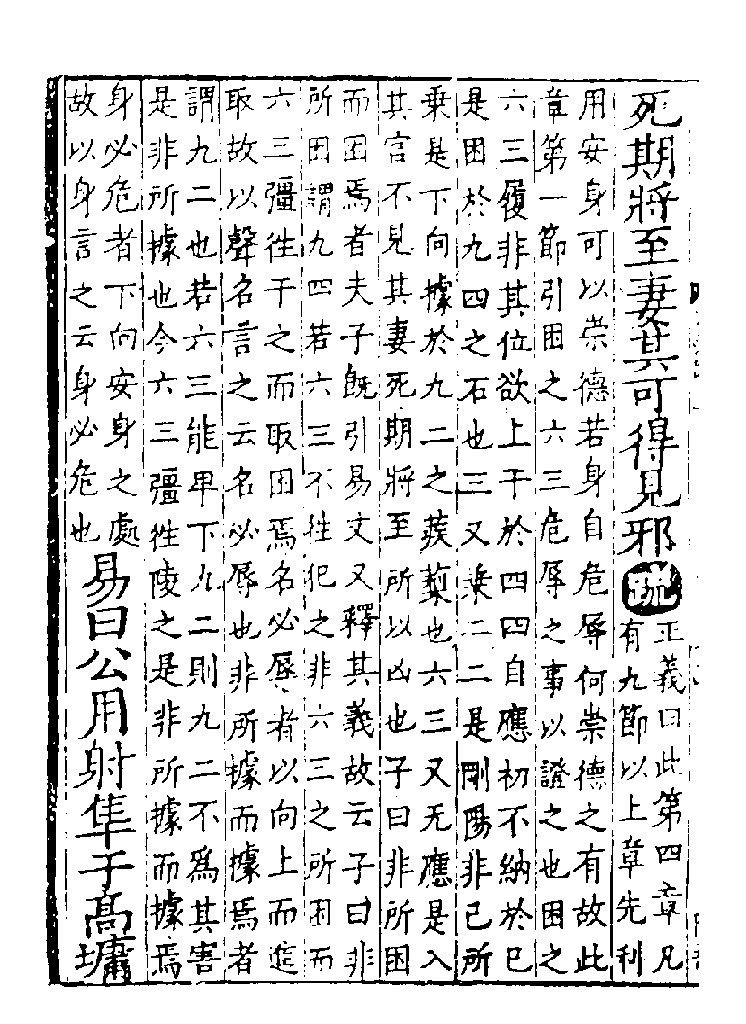 死期將至妻其可得見邪疏正義曰此第四章凡
有九節以上章先利
用安身可以崇德若身自危辱何崇德之有故此
章第一節引困之六三危辱之事以證之也困之
六三履非其位欲上干於四四自應初不納於己
是困於九四之石也三又乘二二是剛陽非己所
乘是下向據於九二之蒺蔾也六三又无應是入
其宮不見其妻死期將至所以凶也子曰非所困
而困焉者夫子旣引易文又釋其義故云子曰非
所困謂九四若六三不往犯之非六三之所困而
六三彊往干之而取困焉名必辱者以向上而進
取故以聲名言之云名必辱也非所據而據焉者
謂九二也若六三能卑下九二則九二不爲其害
是非所據也今六三彊往陵之是非所據而據焉
身必危者下向安身之處
故以身言之云身必危也
易曰公用射隼于高墉